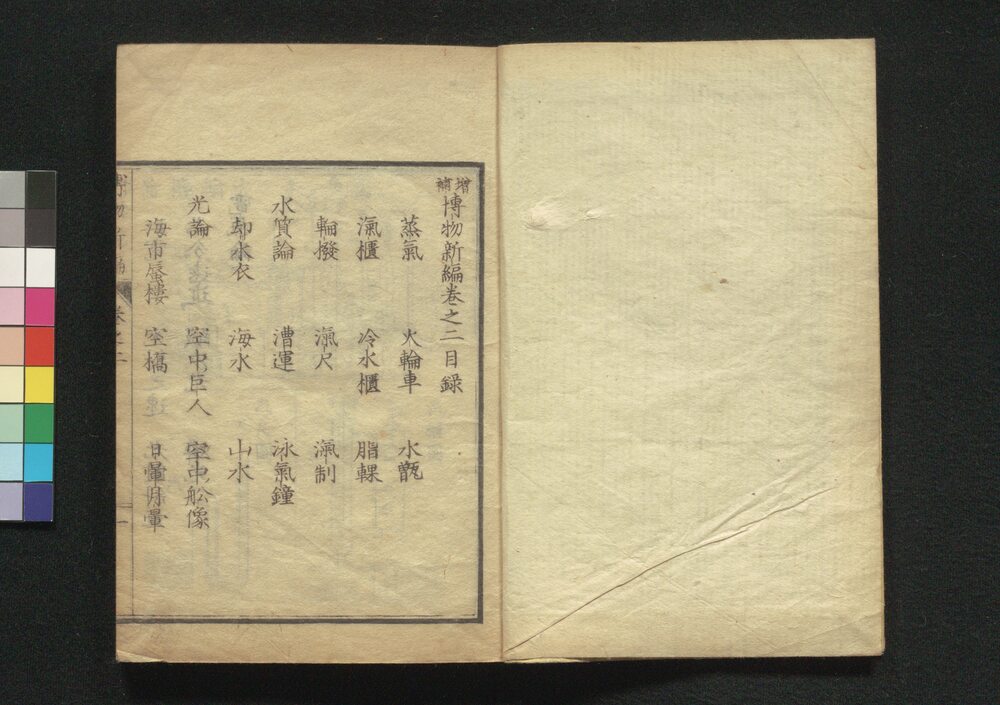 增補博物新編卷之二目録
蒸氣 火輪車 水甑
漏櫃 冷水櫃 脂輠
輪撥 漏尺 漏制
水質論 漕運 泳氣鐘
却水衣 海水 山水
光論 空中巨人 空中舩像
海市蜃樓 空橋 日暈月暈
博物新編 卷之二 一